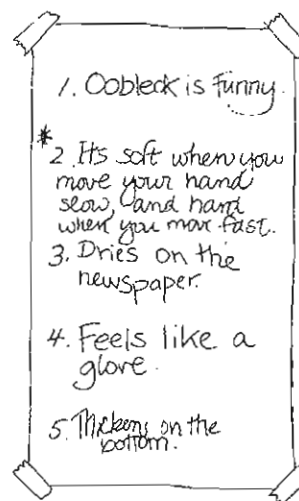 1. Oobleck is funny.
* 2. Its soft when you
move your hand
slow, and hard
when you move fast.
3. Dries on the
newspaper.
4. Feels like a
glove.
5. Thickens on the
bottom.